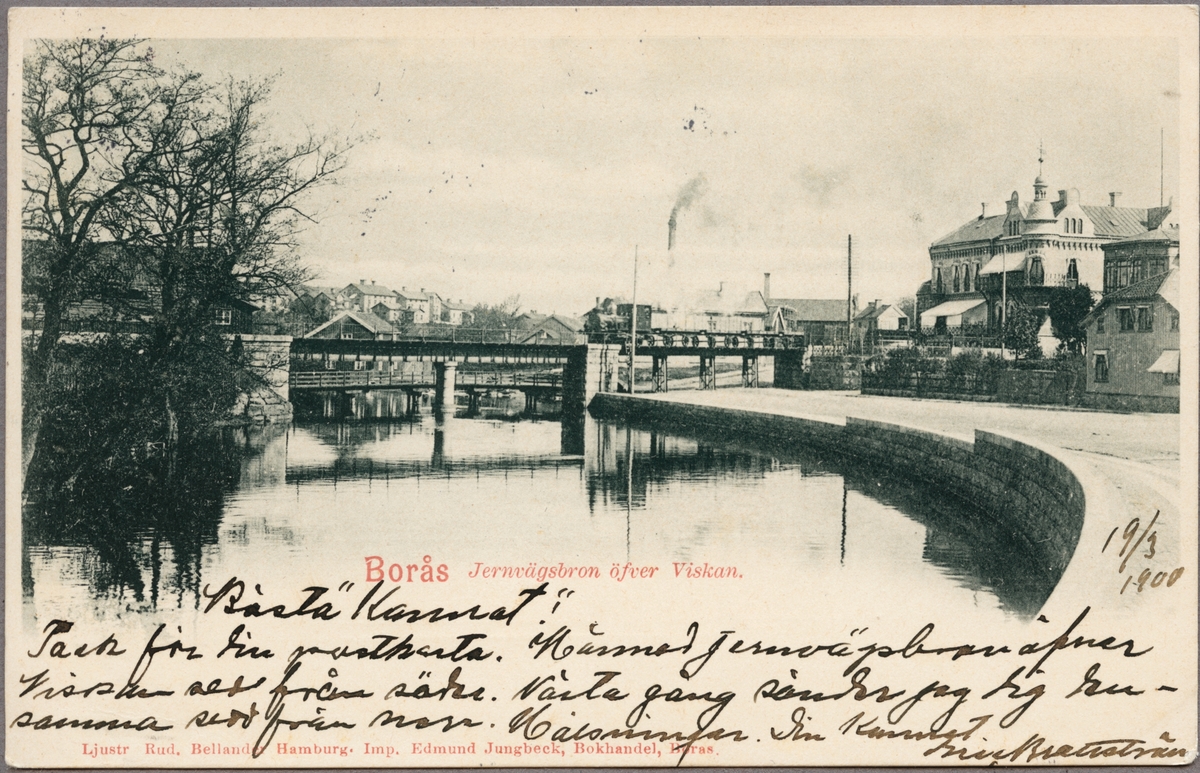 Borås Jernvägsbron öfver Viskan.
19/3
1900
Bästa "Kamrat"!
Tack för din postkarta. Härmed Jernvägsbron öfver
Viskan sedd från söder. Nästa gång sänder jag dig den-
samma sedd från norr. Hälsningar. Din Kamrat
Ljustr Rud. Bellander Hamburg. Imp. Edmund Jungbeck, Bokhandel, Borås.